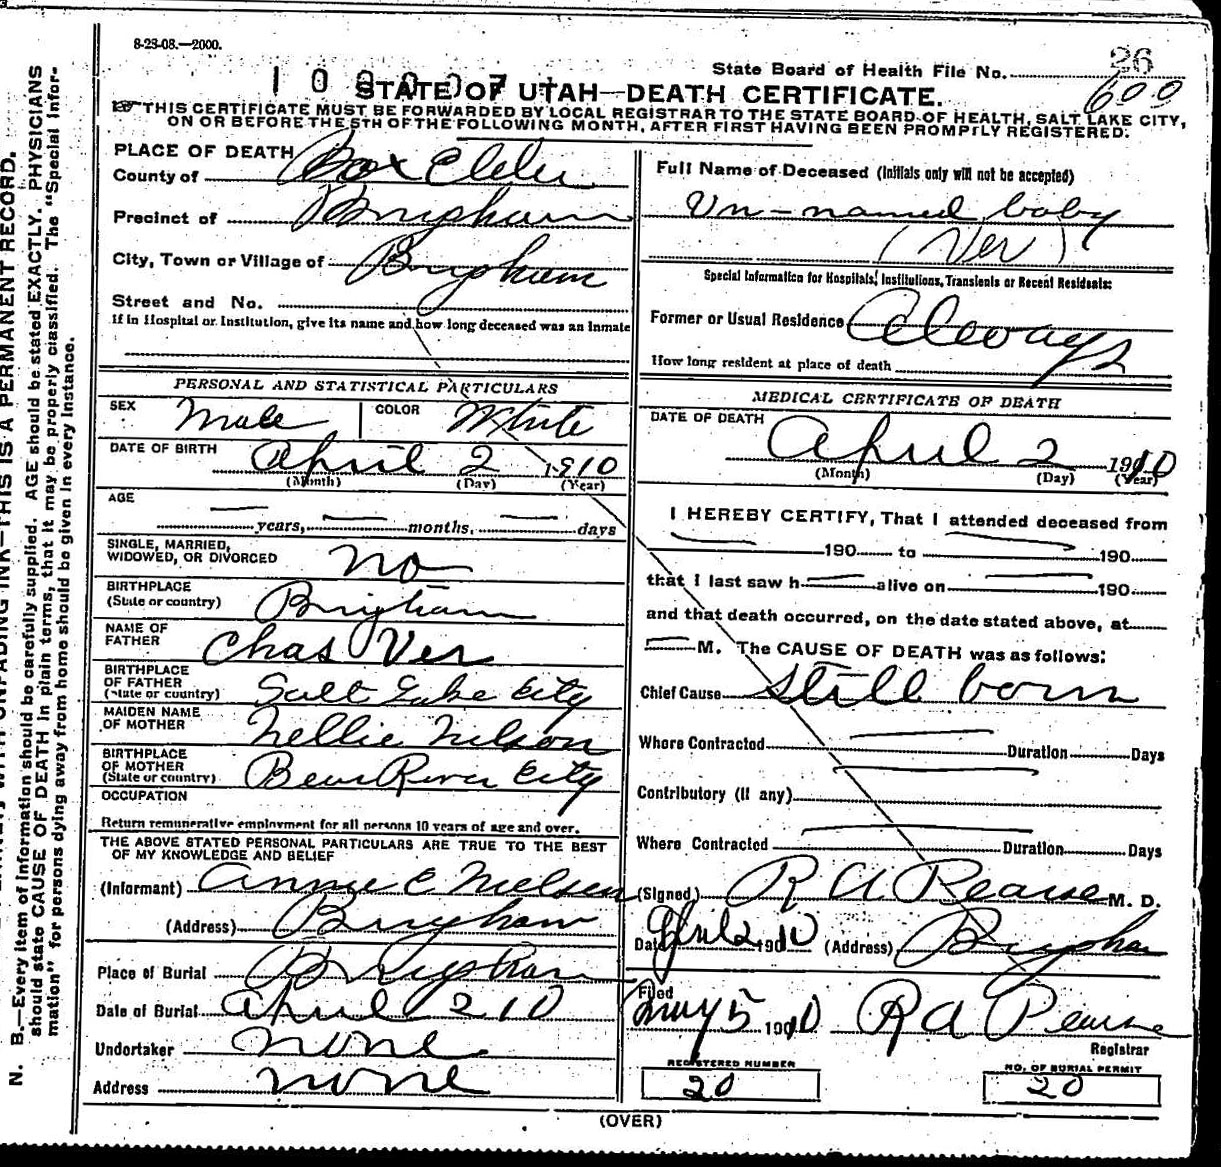 8-23-08.—2000.
26
State Board of Health File No.
600
STATE OF UTAH—DEATH CERTIFICATE.
THIS CERTIFICATE MUST BE FORWARDED BY LOCAL REGISTRAR TO THE STATE BOARD OF HEALTH, SALT LAKE CITY,
ON OR BEFORE THE 5TH OF THE FOLLOWING MONTH, AFTER FIRST HAVING BEEN PROMPTLY REGISTERED.
PLACE OF DEATH
County of Box Elder
Precinct of Brigham
City, Town or Village of Brigham
Street and No.
If in Hospital or Institution, give its name and how long deceased was an inmate
Full Name of Deceased (Initials only will not be accepted)
Un-named baby
(Ver)
Special Information for Hospitals, Institutions, Transients or Recent Residents:
Former or Usual Residence Always
How long resident at place of death
PERSONAL AND STATISTICAL PARTICULARS
SEX Male COLOR White
DATE OF BIRTH April 2 1910
(Month) (Day) (Year)
AGE
years, months, days
SINGLE, MARRIED,
WIDOWED, OR DIVORCED no
BIRTHPLACE
(State or country) Brigham
NAME OF
FATHER Chas Ver
BIRTHPLACE
OF FATHER
(State or country) Salt Lake City
MAIDEN NAME
OF MOTHER Nellie Nelson
BIRTHPLACE
OF MOTHER
(State or country) Bear River City
OCCUPATION
Return remunerative employment for all persons 10 years of age and over.
THE ABOVE STATED PERSONAL PARTICULARS ARE TRUE TO THE BEST
OF MY KNOWLEDGE AND BELIEF
(Informant) Annie E Nielsen
(Address) Brigham
Place of Burial Brigham
Date of Burial April 2 10
Undertaker none
Address none
MEDICAL CERTIFICATE OF DEATH
DATE OF DEATH
April 2 1910
(Month) (Day) (Year)
I HEREBY CERTIFY, That I attended deceased from
190 to 190
that I last saw h alive on 190
and that death occurred, on the date stated above, at
M. The CAUSE OF DEATH was as follows:
Chief Cause Still born
Where Contracted Duration Days
Contributory (if any)
Where Contracted Duration Days
(Signed) R A Pearse M. D.
Date April 2 190 10 (Address) Brigham
Filed
May 5 190 10 R A Pearse
Registrar
REGISTERED NUMBER
20
NO. OF BURIAL PERMIT
20
(OVER)
THIS IS A PERMANENT RECORD.
N. B.—Every item of information should be carefully supplied. AGE should be stated EXACTLY. PHYSICIANS
should state CAUSE OF DEATH in plain terms, that it may be properly classified. The "Special Infor-
mation" for persons dying away from home should be given in every instance.